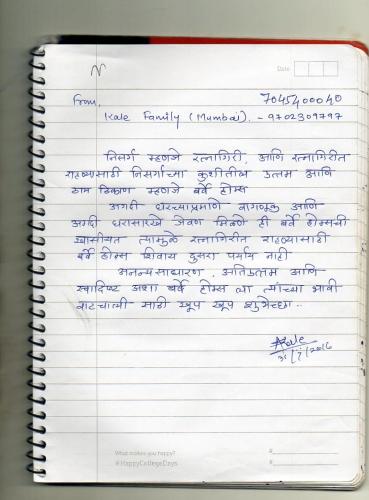 Date
From,
Kale Family (Mumbai). - 9702309797
7045400040
निसर्ग म्हणजे रत्नागिरी, आणि रत्नागिरीत
राहण्यासाठी निसर्गाच्या कुशीतील उत्तम आणि
ठाम ठिकाण म्हणजे बर्वे होम्स
अगदी घरच्याप्रमाणे वागणूक आणि
अगदी घरासारखे जेवण मिळणे ही बर्वे होम्सची
खासीयत त्यामुळे रत्नागिरीत राहण्यासाठी
बर्वे होम्स शिवाय दुसरा पर्याय नाही
अनन्यसाधारण, अतिउत्तम आणि
स्वादिष्ट अशा बर्वे होम्स ला त्यांच्या भावी
वाटचाली साठी खूप खूप शुभेच्छा..
Kale
What makes you happy?
#HappyCollegeDays
#
#